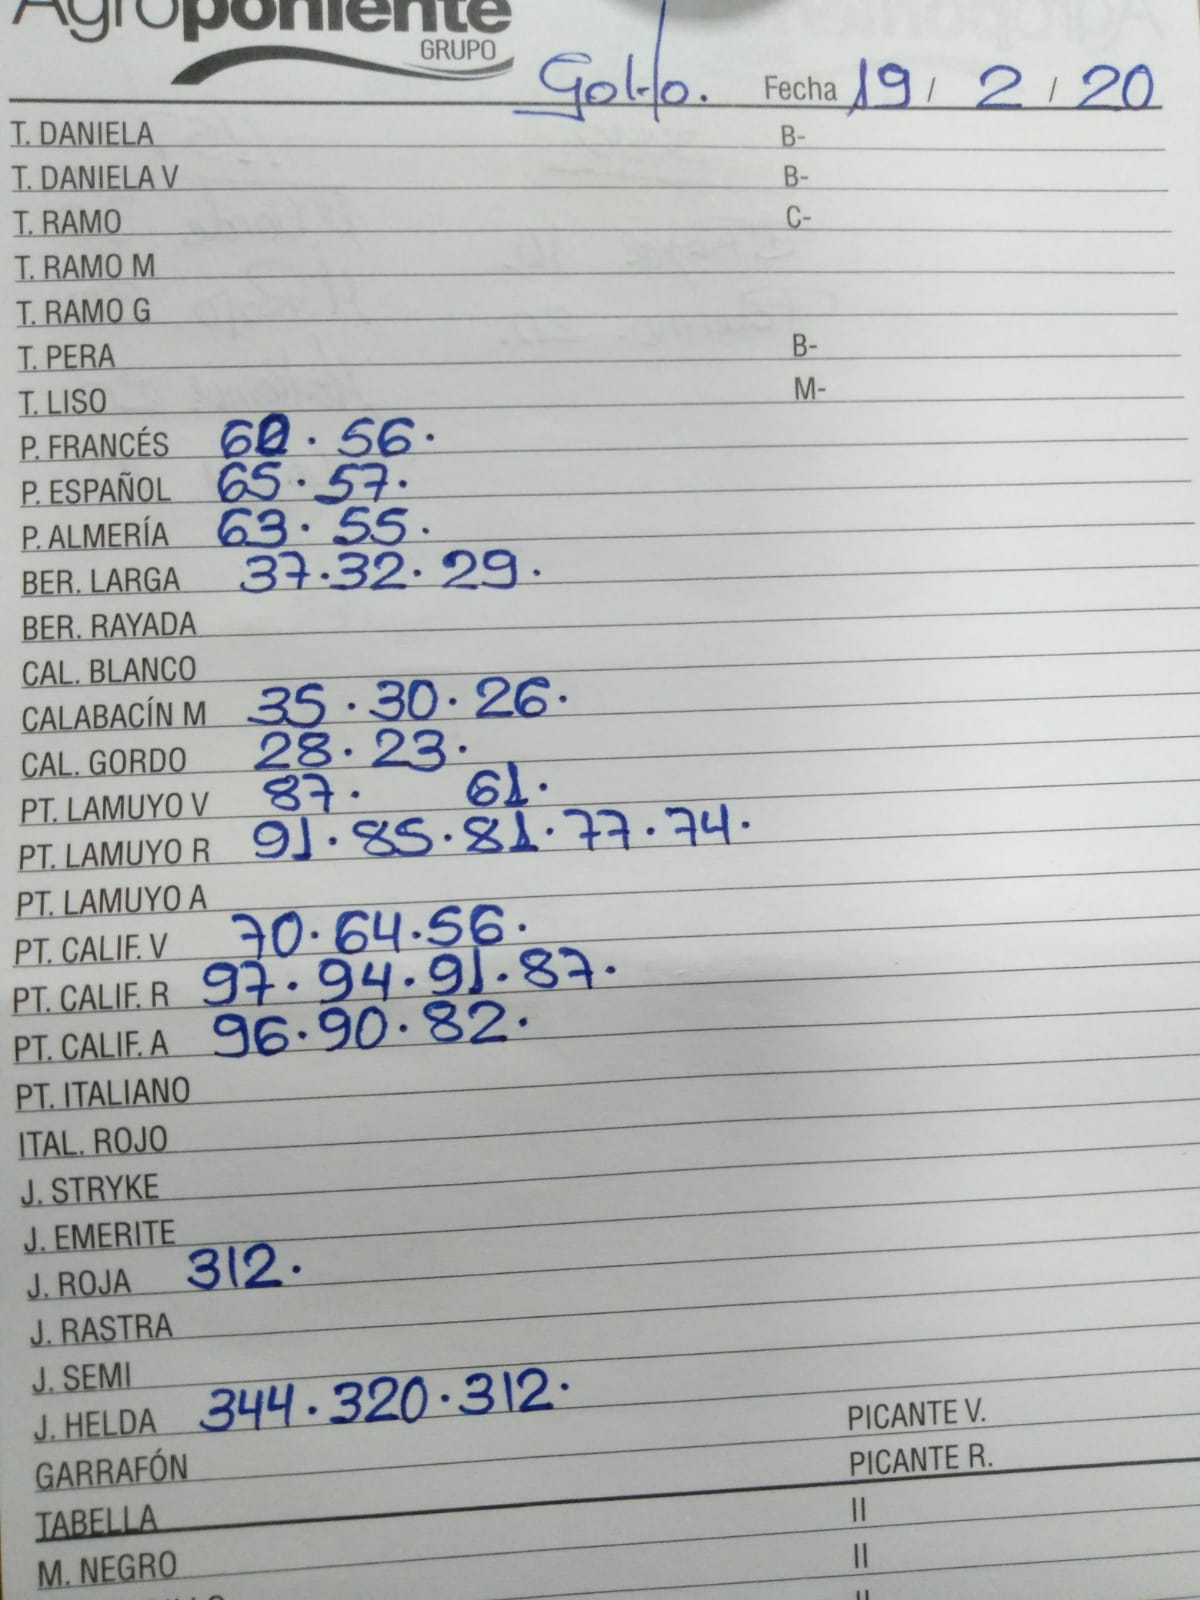 Agroponiente
GRUPO
Golfo. Fecha 19 / 2 / 20
T. DANIELA B-
T. DANIELA V B-
T. RAMO C-
T. RAMO M
T. RAMO G
T. PERA B-
T. LISO M-
P. FRANCÉS 62 · 56 ·
P. ESPAÑOL 65 · 57 ·
P. ALMERÍA 63 · 55 ·
BER. LARGA 37 · 32 · 29 ·
BER. RAYADA
CAL. BLANCO
CALABACÍN M 35 · 30 · 26 ·
CAL. GORDO 28 · 23 ·
PT. LAMUYO V 87 · 61 ·
PT. LAMUYO R 91 · 85 · 81 · 77 · 74 ·
PT. LAMUYO A
PT. CALIF. V 70 · 64 · 56 ·
PT. CALIF. R 97 · 94 · 91 · 87 ·
PT. CALIF. A 96 · 90 · 82 ·
PT. ITALIANO
ITAL. ROJO
J. STRYKE
J. EMERITE
J. ROJA 312 ·
J. RASTRA
J. SEMI
J. HELDA 344 · 320 · 312 · PICANTE V.
GARRAFÓN PICANTE R.
TABELLA II
M. NEGRO II